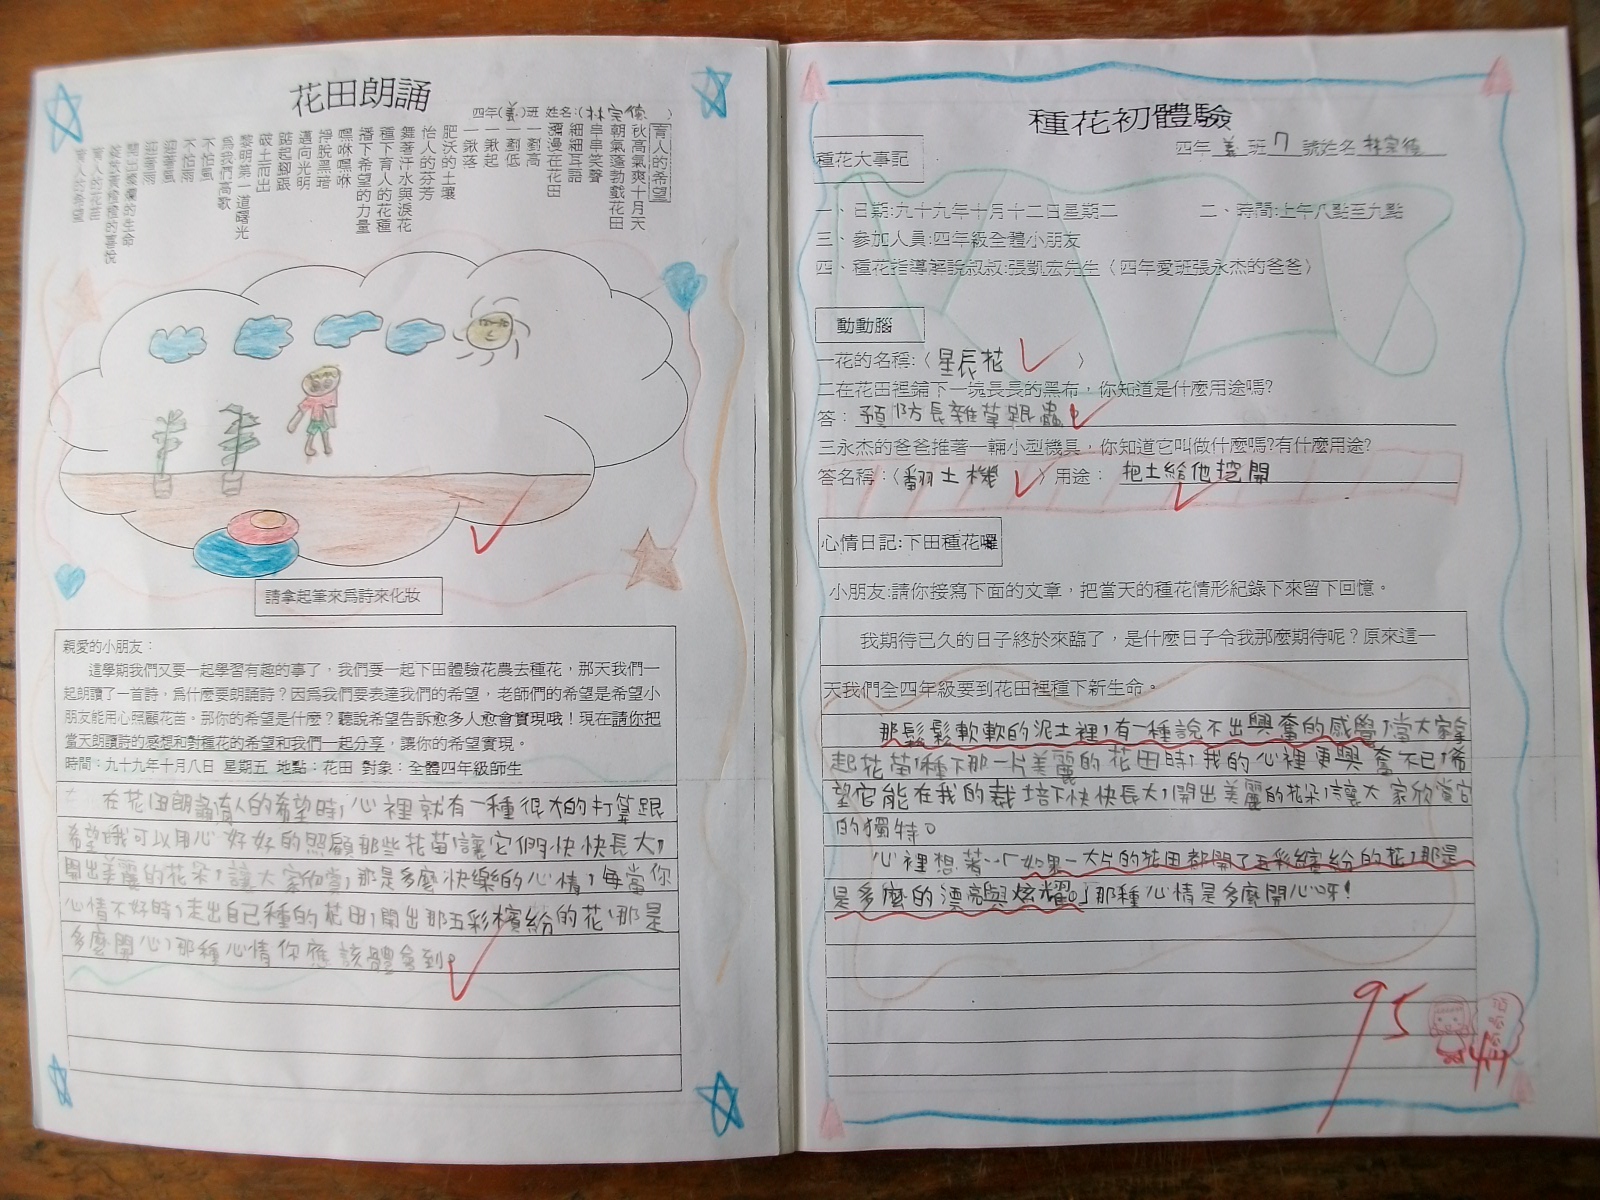 花田朗誦
四年(義)班 姓名:(林宗德)
育人的希望
秋高氣爽十月天
朝氣蓬勃戲花田
串串笑聲
細細耳語
瀰漫在花田
一劃高
一劃低
一鍬起
一鍬落
肥沃的土壤
怡人的芬芳
舞著汗水與淚花
種下育人的花種
播下希望的力量
嘿咻嘿咻
掙脫黑暗
邁向光明
踮起腳跟
破土而出
黎明第一道曙光
為我們高歌
不怕風
不怕雨
迎著風
迎著雨
育人的花苗
育人的希望
請拿起筆來為詩來化妝
親愛的小朋友：
這學期我們又要一起學習有趣的事了，我們要一起下田體驗花農去種花，那天我們一
起朗讀了一首詩，為什麼要朗誦詩？因為我們要表達我們的希望，老師們的希望是希望小
朋友能用心照顧花苗。那你的希望是什麼？聽說希望告訴愈多人愈會實現哦！現在請你把
當天朗讀詩的感想和對種花的希望和我們一起分享，讓你的希望實現。
時間：九十九年十月八日 星期五 地點：花田 對象：全體四年級師生
在花田朗誦育人的希望時，心裡就有一種很大的打算跟
希望，我可以用心好好的照顧那些花苗，讓它們快快長大，
開出美麗的花朵，讓大家欣賞，那是多麼快樂的心情，每當你
心情不好時，走出自己種的花田，開出那五彩檳紛的花，那是
多麼開心，那種心情你應該體會到。
種花初體驗
四年義班7號姓名林宗德
種花大事記
一、日期:九十九年十月十二日星期二 二、時間:上午八點至九點
三、參加人員:四年級全體小朋友
四、種花指導解說叔叔:張凱宏先生（四年愛班張永杰的爸爸）
動動腦
一花的名稱:（星辰花）
二在花田裡鋪下一塊長長的黑布，你知道是什麼用途嗎?
答：預防長雜草跟蟲。
三永杰的爸爸推著一輛小型機具，你知道它叫做什麼嗎?有什麼用途?
答名稱：（翻土機）用途：把土給他挖開
心情日記:下田種花囉
小朋友:請你接寫下面的文章，把當天的種花情形紀錄下來留下回憶。
我期待已久的日子終於來臨了，是什麼日子令我那麼期待呢？原來這一
天我們全四年級要到花田裡種下新生命。
那鬆鬆軟軟的泥土裡，有一種說不出興奮的感覺，當大家拿
起花苗，種下那一片美麗的花田時，我的心裡更興奮不已，希
望它能在我的栽培下快快長大，開出美麗的花朵，讓大家欣賞它
的獨特。
心裡想著：「如果一大片的花田都開了五彩繽紛的花，那是
是多麼的漂亮與炫耀。」那種心情是多麼開心呀！
95